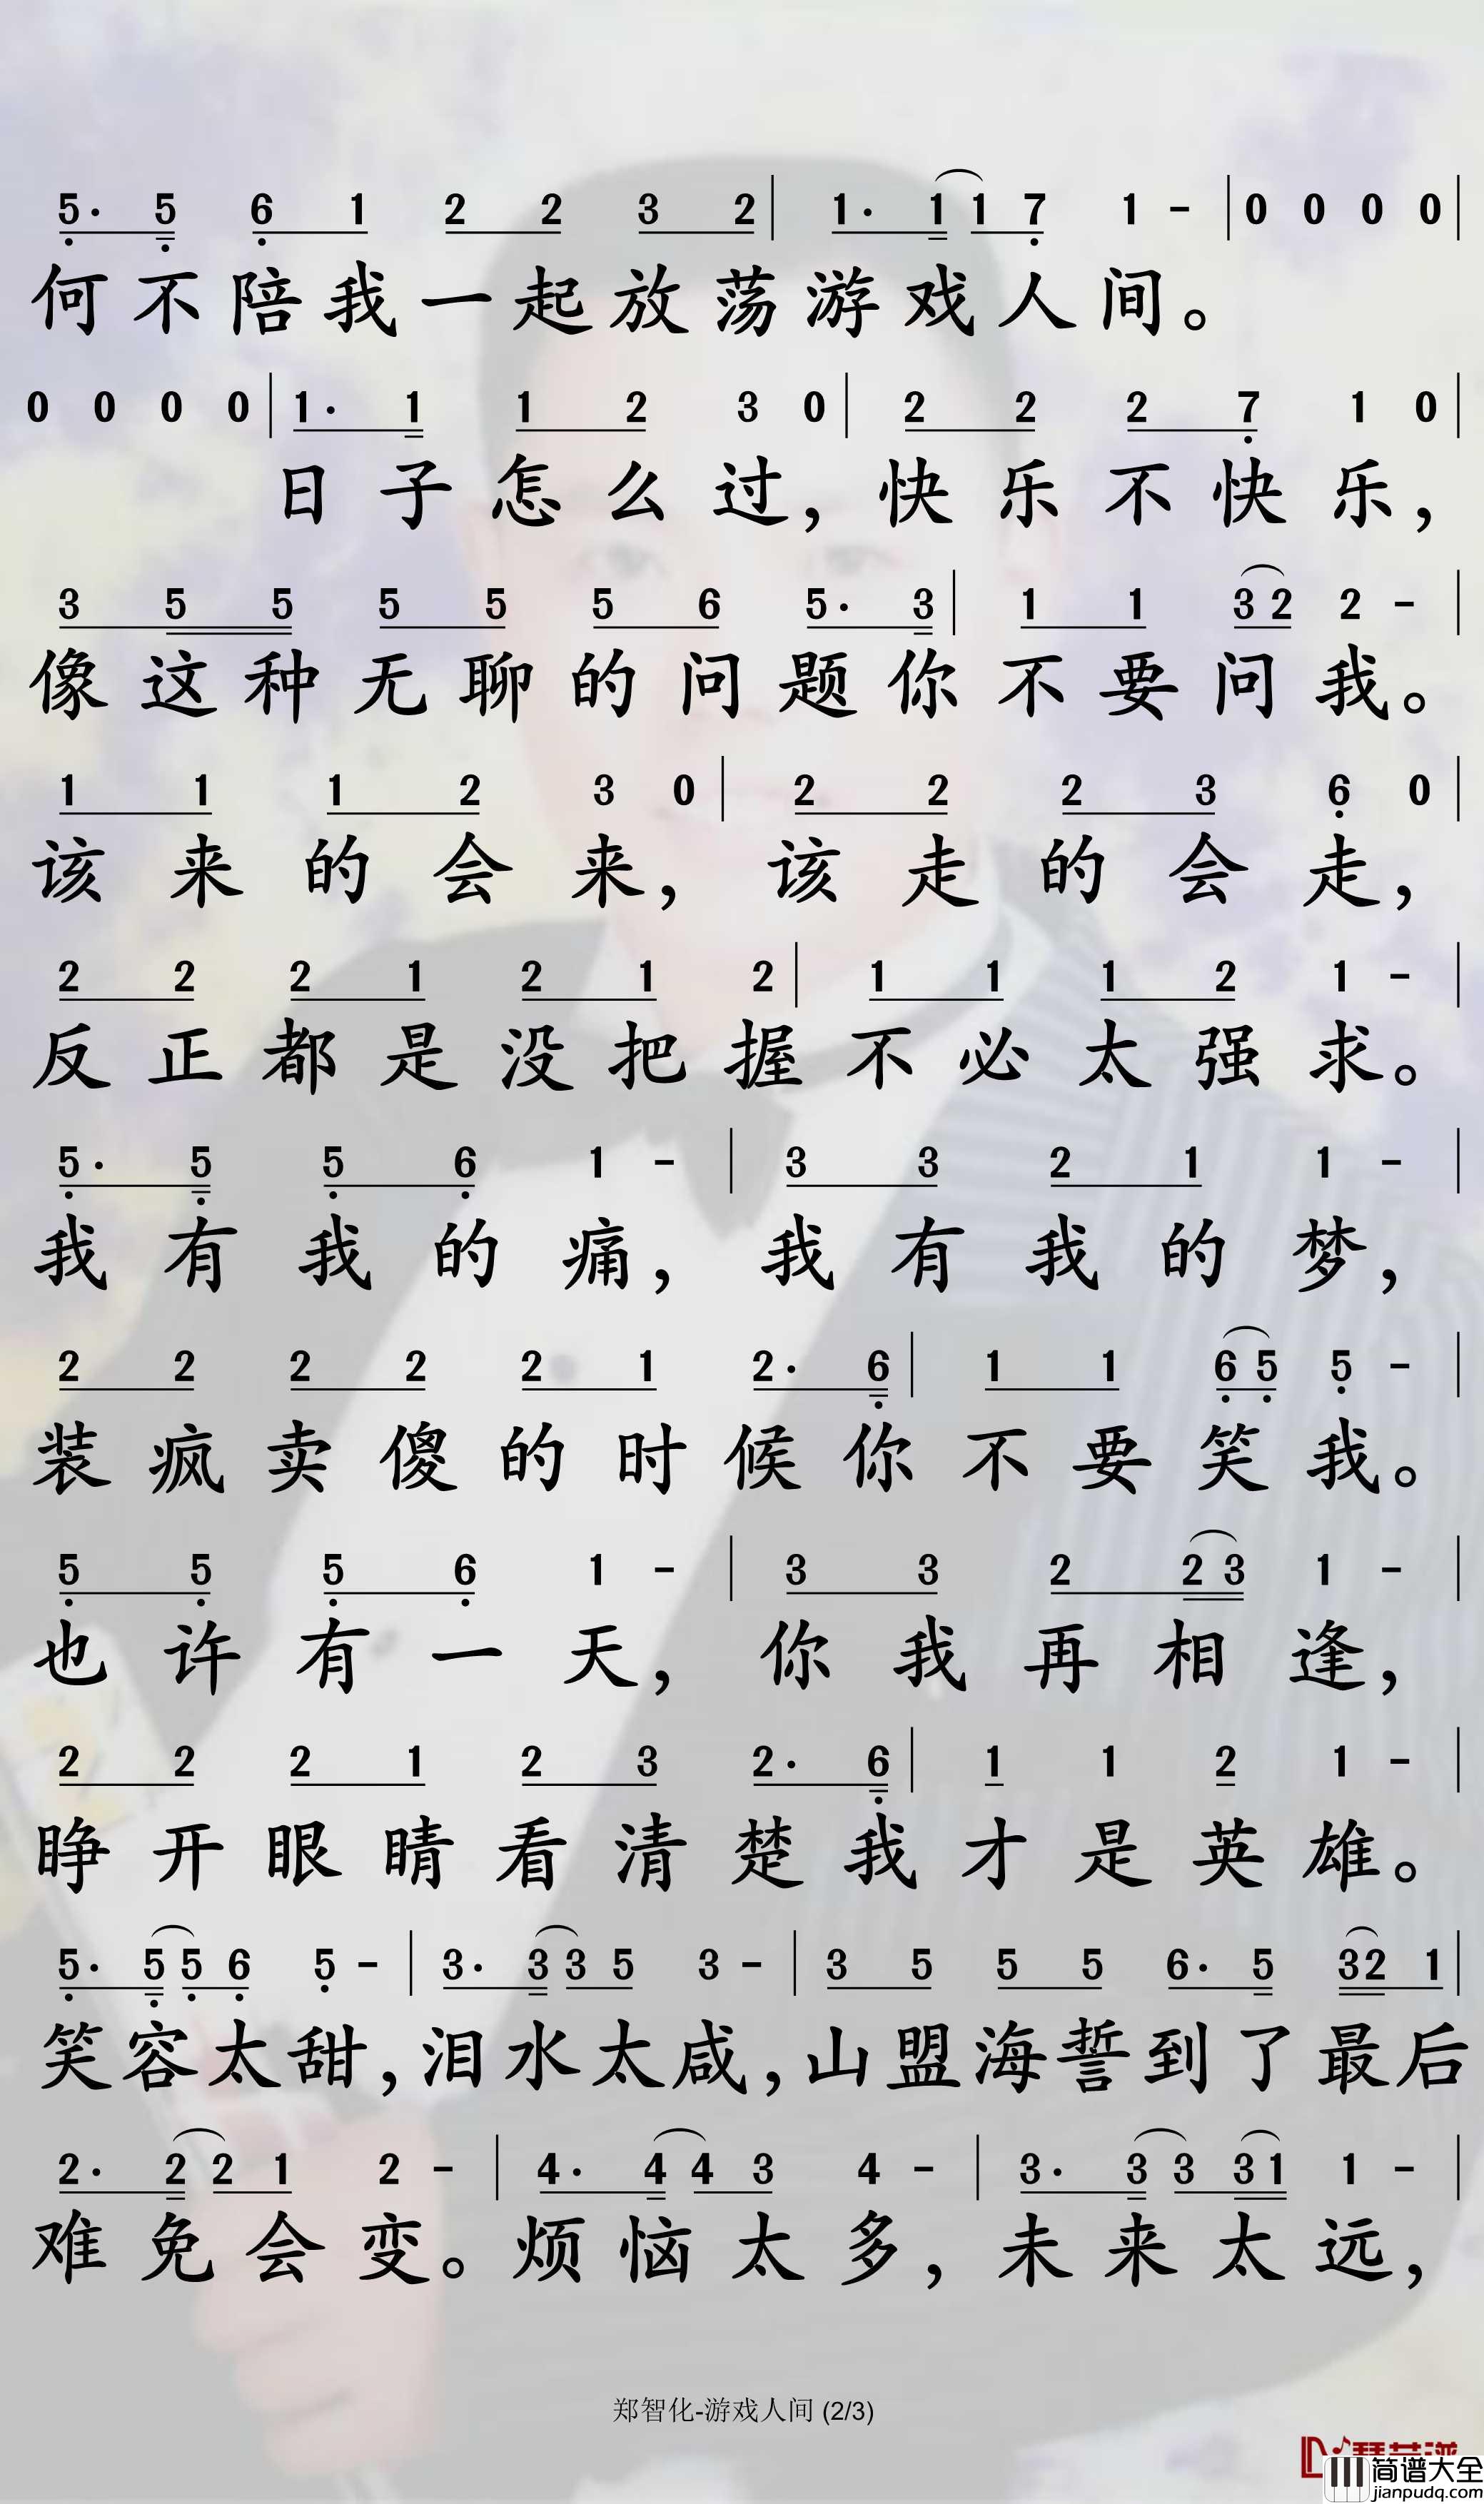 5· 5 6 1 2 2 3 2 | 1· 1 1 7 1 - | 0 0 0 0 |
何不陪我一起放荡游戏人间。
0 0 0 0 | 1· 1 1 2 3 0 | 2 2 2 7 1 0 |
日子怎么过，快乐不快乐，
3 5 5 5 5 5 6 5· 3 | 1 1 3 2 2 - |
像这种无聊的问题你不要问我。
1 1 1 2 3 0 | 2 2 2 3 6 0 |
该来的会来，该走的会走，
2 2 2 1 2 1 2 | 1 1 1 2 1 - |
反正都是没把握不必太强求。
5· 5 5 6 1 - | 3 3 2 1 1 - |
我有我的痛，我有我的梦，
2 2 2 2 2 1 2· 6 | 1 1 6 5 5 - |
装疯卖傻的时候你不要笑我。
5 5 5 6 1 - | 3 3 2 2 3 1 - |
也许有一天，你我再相逢，
2 2 2 1 2 3 2· 6 | 1 1 2 1 - |
睁开眼睛看清楚我才是英雄。
5· 5 5 6 5 - | 3· 3 3 5 3 - | 3 5 5 5 6· 5 3 2 1 |
笑容太甜，泪水太咸，山盟海誓到了最后
2· 2 2 1 2 - | 4· 4 4 3 4 - | 3· 3 3 3 1 1 - |
难免会变。烦恼太多，未来太远，
郑智化-游戏人间 (2/3)
简谱大全
jianpudq.com